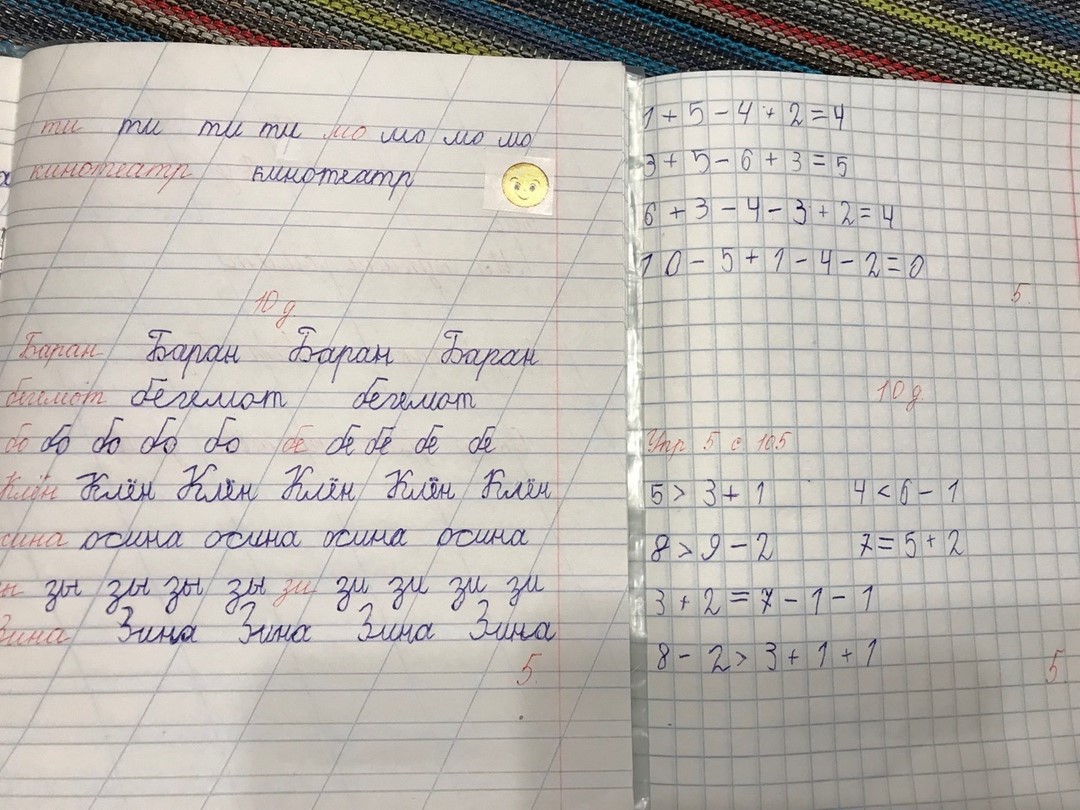 ти ти ти ти мо мо мо мо
кинотеатр кинотеатр
10 д
Баран Баран Баран Баран
бегемот бегемот бегемот
бо бо бо бо бо бе бе бе бе бе
Клён Клён Клён Клён Клён Клён
осина осина осина осина
зы зы зы зы зи зи зи зи зи
Зина Зина Зина Зина Зина
5
1+5-4+2=4
3+5-6+3=5
6+3-4-3+2=4
10-5+1-4-2=0
5
10 д
Упр 5 с 105
5>3+1 4<6-1
8>9-2 7=5+2
3+2=7-1-1
8-2>3+1+1
5